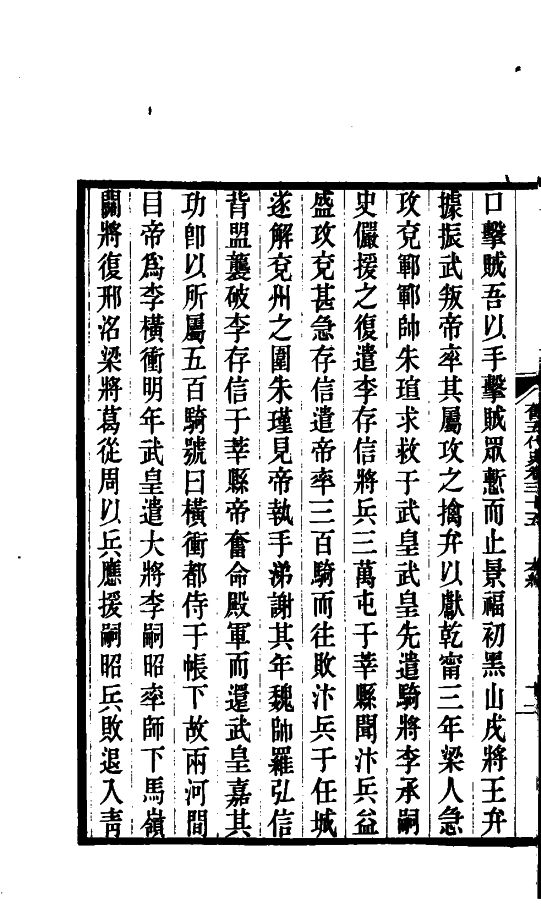 口擊賊吾以手擊賊眾慙而止景福初黑山戍將王弁
據振武叛帝率其屬攻之擒弁以獻乾甯三年梁人急
攻兗鄆鄆帥朱瑄求救于武皇武皇先遣騎將李承嗣
史儼援之復遣李存信將兵三萬屯于莘縣聞汴兵益
盛攻兗甚急存信遣帝率三百騎而往敗汴兵于任城
遂解兗州之圍朱瑾見帝執手涕謝其年魏帥羅弘信
背盟襲破李存信于莘縣帝奮命殿軍而還武皇嘉其
功卽以所屬五百騎號曰橫衝都侍于帳下故兩河間
目帝爲李橫衝明年武皇遣大將李嗣昭率師下馬嶺
關將復邢洺梁將葛從周以兵應援嗣昭兵敗退入靑
舊五代史卷三十五